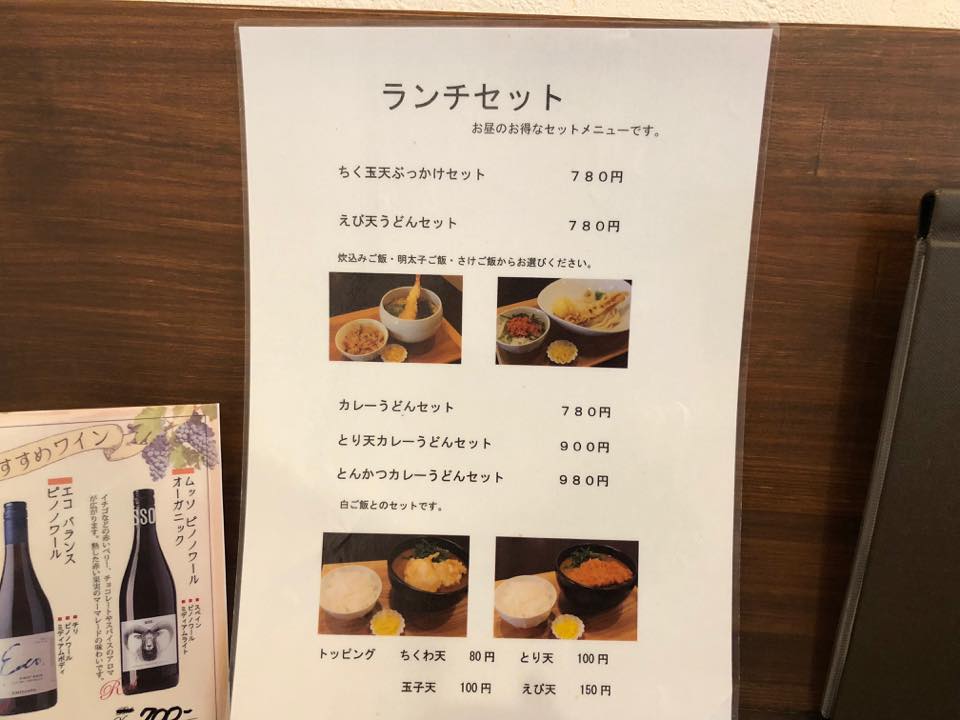 ランチセット
お昼のお得なセットメニューです。
ちく玉天ぶっかけセット ７８０円
えび天うどんセット ７８０円
炊込みご飯・明太子ご飯・さけご飯からお選びください。
カレーうどんセット ７８０円
とり天カレーうどんセット ９００円
とんかつカレーうどんセット ９８０円
白ご飯とのセットです。
トッピング ちくわ天 80円 とり天 100円
玉子天 100円 えび天 150円
すすめワイン
ムッソ ピノノワール
オーガニック
■スペイン
■ピノノワール
■ミディアムライト
イチゴなどの赤いベリー、チョコレートやスパイスのアロマ
が広がります。熟した赤い果実のマーマレードの味わいです。
エコ バランス
ピノノワール
■チリ
■ピノノワール
■ミディアムボディ
SSO
Eco
700-